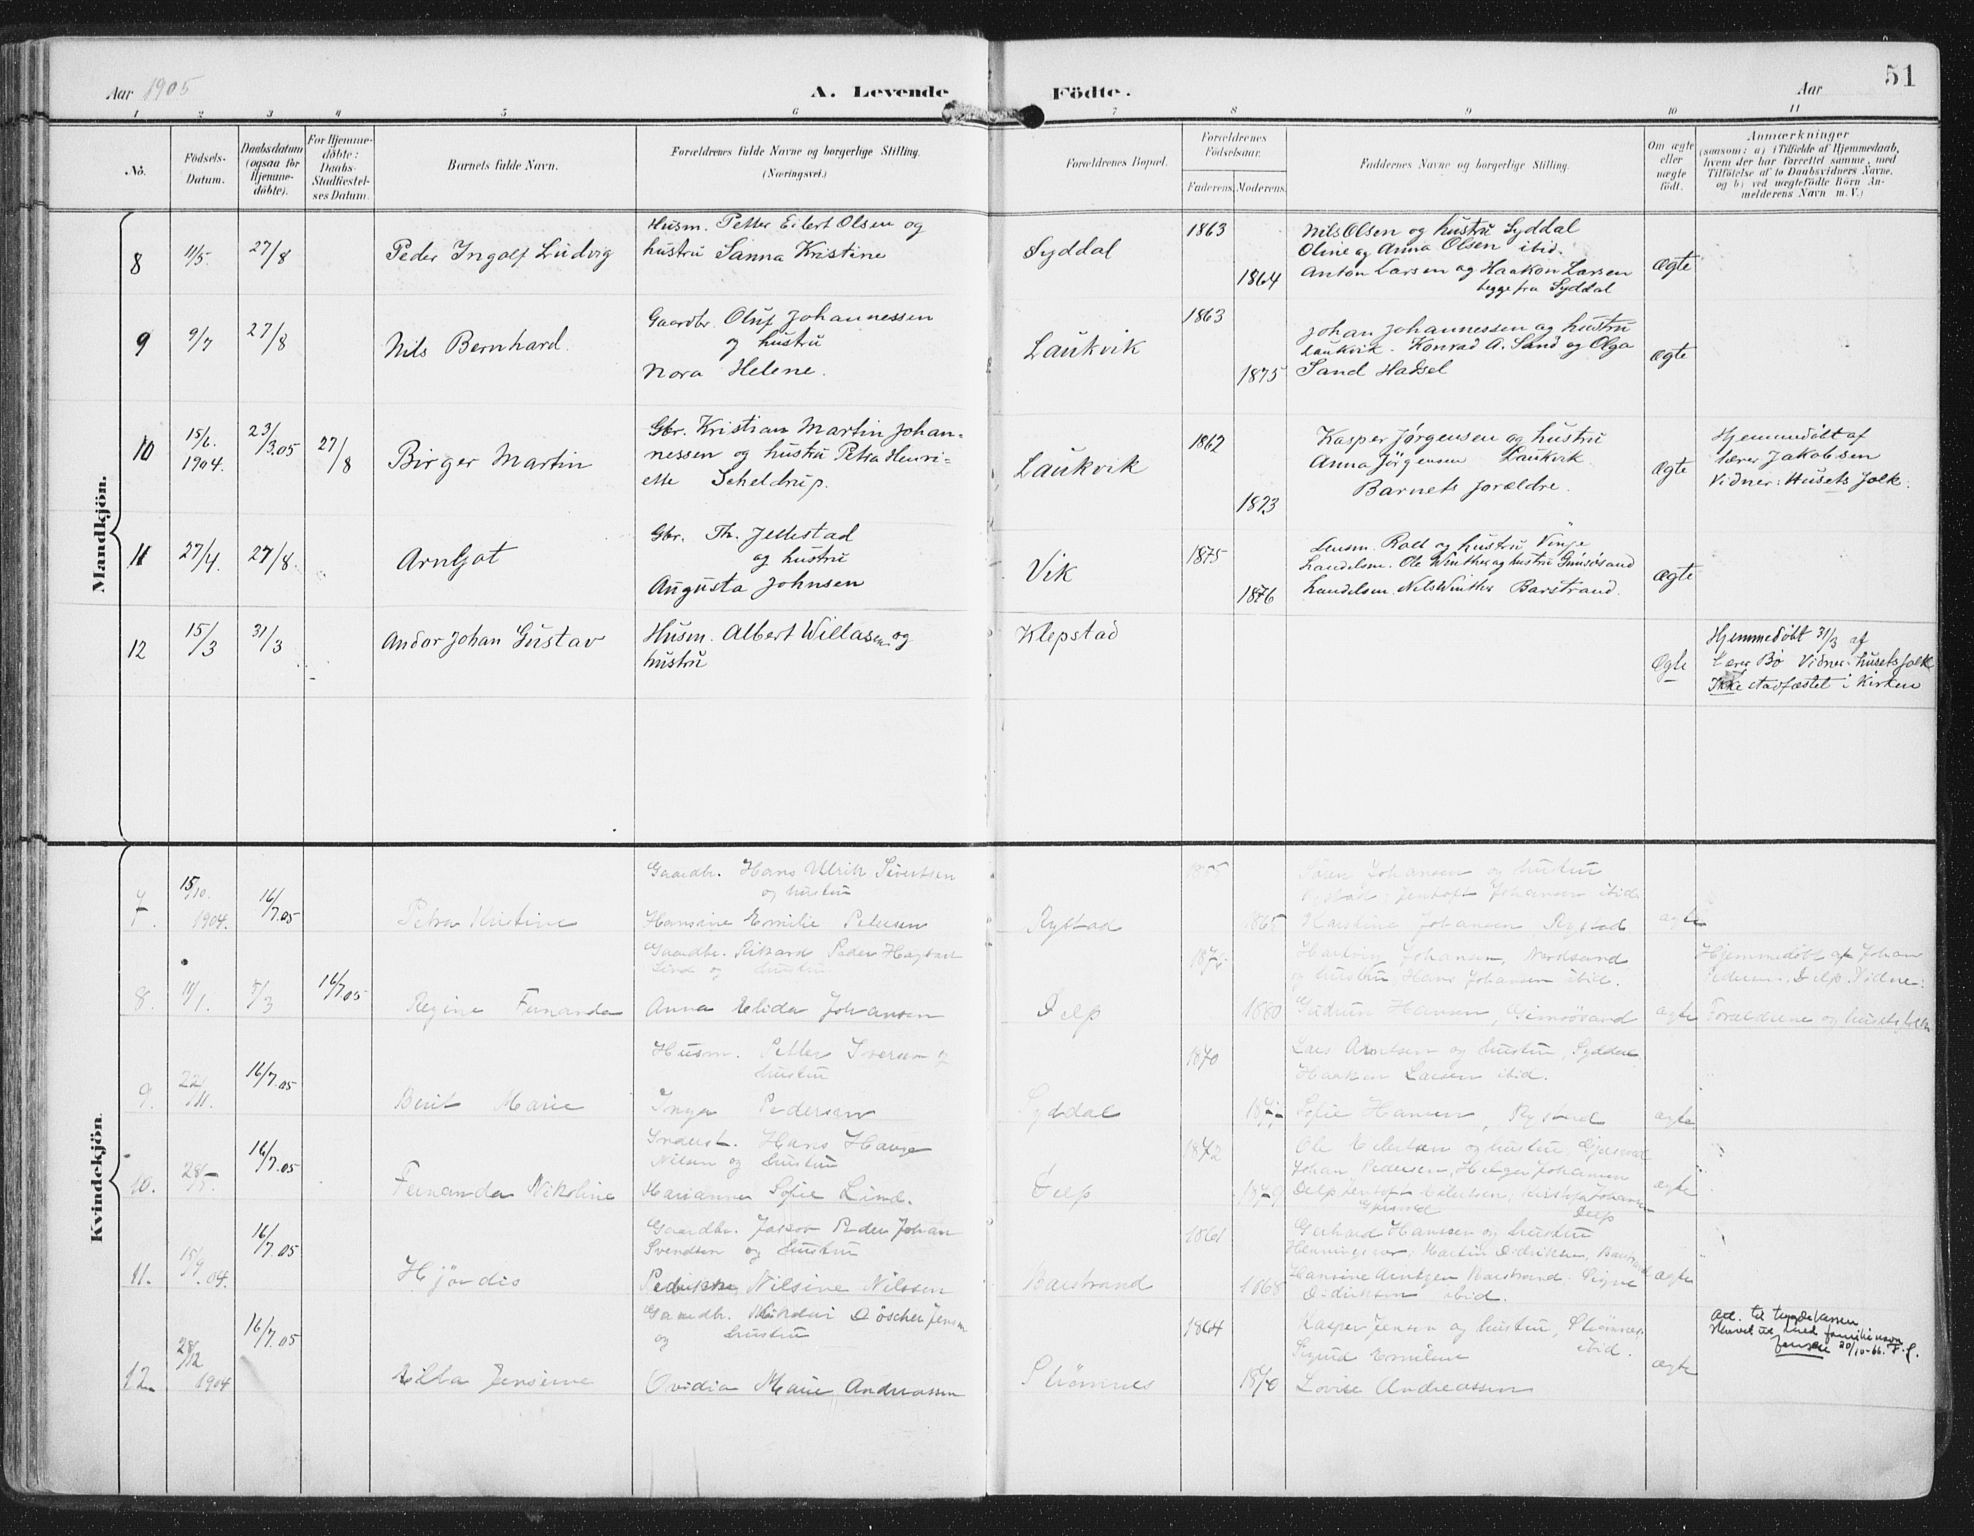 Aar 1905
A. Levende
Födte.
Aar
51
1 2 3 4 5 6 7 8 9 10 11
No.
Födsels-
Datum.
Daabsdatum
(ogsaa for
Hjemme-
döbte).
For Hjemme-
döbte:
Daabs-
Stadfæstel-
ses Datum.
Barnets fulde Navn.
Forældrenes fulde Navne og borgerlige Stilling.
(Næringsvei.)
Forældrenes Bopæl.
Forældrenes
Födselsaar.
Faderens. Moderens.
Faddernes Navne og borgerlige Stilling.
Om ægte
eller
uægte
födt.
Anmærkninger
(saasom: a) i Tilfælde af Hjemmedaab,
hvem der har forrettet samme, med
Tilföielse af to Daabsvidners Navne,
og b) ved uægtefödte Börn An-
melderens Navn m. V.)
Mandkjön.
8
11/5.
27/8
Peder Ingolf Ludvig
Husm. Petter Eilert Olsen og
hustru Sanna Kristine
Syddal
1863
1864
Nils Olsen og hustru Syddal
Oline og Anna Olsen ibid.
Anton Larsen og Haakon Larsen
begge fra Syddal
Ægte
9
9/7
27/8
Nils Bernhard.
Gaardbr. Oluf Johannessen
og hustru
Nora Helene.
Laukvik
1863
1875
Johan Johannessen og hustru
Laukvik. Konrad A. Sand og Olga
Sand Hadsel
Ægte
10
15/6.
1904.
23/3.05
27/8
Birger Martin
Gbr. Kristian Martin Johan-
nessen og hustru Petra Henri-
ette Scheldrup.
Laukvik
1862
1873
Kasper Jørgensen og hustru
Anna Jørgensen Laukvik
Barnets forældre.
Ægte
Hjemmedøbt af
lærer Jakobsen
Vidner: Husets folk.
11
27/4.
27/8.
Arnljot
Gbr. Th. Jellestad
og hustru
Augusta Johnsen
Vik
1875
1876
Lensm. Roll og hustru Vinje
Landelsm. Ole Winther og hustru Gimsøsand
Landelsm. Nils Winther Barstrand.
Ægte
12
15/3
31/3
Andor Johan Gustav
Husm. Albert Willasen og
hustru
Klepstad
Ægte
Hjemmedøbt 31/3 af
Lærer Bø Vidner: husets folk
Ikke stadfæstet i Kirken
Kvindekjön.
7.
15/10.
1904.
16/7.05
Petra Kristine
Gaardbr. Hans Ulrik Sivertsen
og hustru
Hansine Emilie Petersen
Rystad
1865
Søren Johansen og hustru
Rystad, Jentoft Johansen ibid.
Karoline Johansen, Rystad
ægte
8.
11/1.
5/3
16/7.05
Regine Fernanda
Gaardbr. Rikard Peder
Lind og hustru
Anna Elida Johansen
Delp
1880
Hartvig Johansen, Nordsand
og hustru, Hans Johansen ibid.
Gudrun Hansen, Gimsösand
ægte
Hjemmedøbt af Johan
Pedersen, Delp. Vidne:
Forældrene og husets folk
9.
22/11.
16/7.05
Berit Marie
Husm. Petter Iversen og
hustru
Inga Pedersen
Syddal
1870
Lars Arntsen og hustru, Syddal
Haakon Larsen ibid.
Sofie Hansen, Rystad
ægte
10.
16/7.05
Fernanda Nikoline
Inderst. Hans Hauge
Nilsen og hustru
Marianna Sofie Lind.
Delp
1872
1879
Johan Pedersen, Helger Johansen
Delp
ægte
11.
15/9.04.
16/7.05
Hjördis
Gaardbr. Jakob Peder Johan
Svendsen og hustru
Pedrikke Nilsine Nilssen
Barstrand
1861
1868
Gerhard Hanssen og hustru
Henningsvær, Martin Didriksen, Barstrand
Hansine Arntzen Barstrand. Signe
Didriksen ibid.
ægte
12.
28/12
1904
16/7.05
Alba Jensine
Gaardbr. Nikolai Döscher Jensen
og hustru
Ovidia Marie Andreassen
Strömnes
1864
1870
Kasper Jensen og hustru, Strömnes
Sigrid Emilie ibid.
Lovise Andreassen
ægte
Att. til trygdekassen
med familienavn
Jensen 20/10-66. F.J.